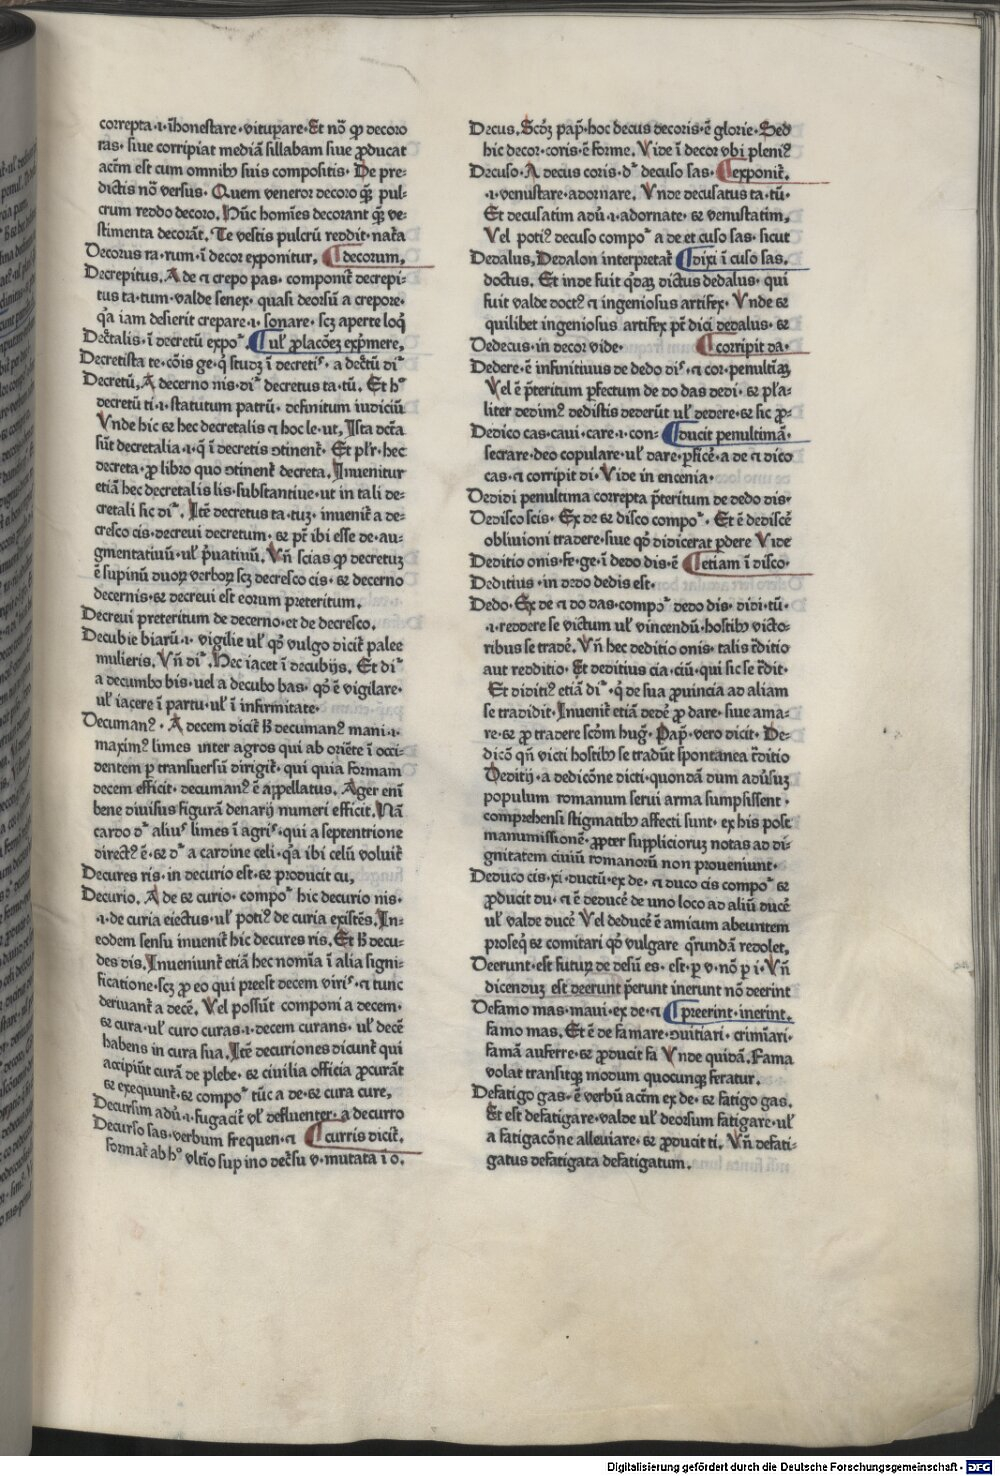 correpta·i·ihonestare·vitupare·Et nō qp decoro
ras·siue corripiat mediā sillabam siue ꝓducat
actm est cum omnibꝫ suis compositis·De pre-
dictis nō versus·Quem veneror decoro qꝫ pul-
crum reddo decoro,Hūc homīes decorant qꝫ ve-
stimenta decorāt,Te vestis pulcrū reddit·nata
Decorus ra·rum·ī decor exponitur, ¶decorum,
Decrepitus,A de ⁊ crepo pas·componit̄ decrepi-
tus ta·tum·valde senex·quasi deorsū a crepore·
q̄a iam desierit crepare·i·sonare·scꝫ aperte loq̄
Decretalis·ī decretū expo⁻·¶ul' ꝓlacōeꝫ exp̄mere,
Decretista te·cōis ge·q̄ studꝫ ī decretis·a decretū di⁻
Decretū,A decerno nis·di⁻ decretus ta·tū·Et h°
decretū ti·i·statutum patrū·definitum iudiciū
Vnde hic ⁊ hec decretalis ⁊ hoc le·ut,Ista dcta
sūt decretalia·i·q̄ ī decretis ꝯtinent̄·Et pl'r·hec
decreta·ꝓ libro quo ꝯtinent̄ decreta,Inuenitur
etiā hec decretalis lis·substantiue·ut in tali de-
cretali sic di⁻,Itē decretus ta·tuꝫ·inuenit̄ a de-
cresco cis·decreui decretum·⁊ pt̄ ibi esse de·au-
gmentatiuū·ul' p̄uatiuū,Vn̄ scias qp decretuꝫ
ē supinū duoꝝ verboꝝ scꝫ decresco cis·⁊ decerno
decernis·⁊ decreui est eorum preteritum,
Decreui preteritum de decerno·et de decresco,
Decubie biarū·i·vigilie ul' qd̄ vulgo dicit̄ palee
mulieris,Vn̄ di⁻,Hec iacet ī decubijs,Et di⁻
a decumbo bis·uel a decubo bas·qd̄ ē vigilare·
ul' iacere ī partu·ul' ī infirmitate·
Decumanꝰ·A decem dicit̄ h̄ decumanꝰ mani·i·
maximꝰ limes inter agros qui ab oriēte ī occi-
dentem p transuersū dirigit̄·qui quia formam
decem efficit·decumanꝰ ē appellatus,Ager enī
bene diuisus figurā denarij numeri efficit,Nā
cardo d⁻ alius limes ī agris·qui a septentrione
directꝰ ē·⁊ d⁻ a cardine celi·q̄a ibi celū voluit̄
Decures ris·in decurio est·⁊ producit cu,
Decurio,A de ⁊ curio·compo⁻ hic decurio nis·
·i·de curia eiectus·ul' potiꝰ de curia existēs,In-
eodem sensu inuenit̄ hic decures ris,Et h̄ decu-
des dis,Inueniunt̄ etiā hec nomīa ī alia signi-
ficatione·scꝫ ꝓ eo qui preest decem viris·⁊ tunc
deriuant̄ a decē,Vel possūt componi a decem·
⁊ cura·ul' curo curas·i·decem curans·ul' decē
habens in cura sua,Itē decuriones dicunt̄ qui
accipiūt curā de plebe·⁊ ciuilia officia ꝓcurāt
⁊ exequunt̄·⁊ compo⁻ tūc a de·⁊ cura cure,
Decursim adū·i·fugacit̄ vl' defluenter·a decurro
Decurso sas·verbum frequen·⁊ ¶curris dicit̄,
format̄ ab h° vltīo supino decursu v·mutata ī o,
Decus,Scd̄ꝫ pap̄·hoc decus decoris·ē glorie·Sed
hic decor·coris·ē forme,Vide ī decor vbi pleniꝰ
Decuso·A decus coris·d⁻ decuso sas·¶exponit̄,
·i·venustare·adornare,Vnde decusatus ta·tū·
Et decusatim adū·i·adornate·⁊ venustatim,
Vel potiꝰ decuso compo⁻ a de et cuso sas·sicut
Dedalus,Dedalon interpretat̄ ¶dixi ī cuso sas,
doctus,Et inde fuit qd̄aꝫ dictus dedalus·qui
fuit valde doctꝰ ⁊ ingeniosus artifex·Vnde ⁊
quilibet ingeniosus artifex pt̄ dici dedalus·⁊
Dedecus·in decor vide· ¶corripit da·
Dedere·ē infinitiuus de dedo dis·⁊ cor·penultīaꝫ
Vel ē p̄teritum perfectum de do das dedi·⁊ pl'a-
liter dedimꝰ dedistis dederūt ul' dedere·⁊ sic ꝓ-
Dedico cas·caui·care·i·con-¶ducit penultimā·
secrare·deo copulare·ul' dare·perficē·a de ⁊ dico
cas·⁊ corripit di·Vide in encenia·
Dedidi penultima correpta p̄teritum de dedo dis·
Dedisco scis·Ex de ⁊ disco compo⁻·Et ē dediscē
obliuioni tradere·siue qd̄ didicerat perdere Vide
Deditio onis·fe·ge·ī dedo dis·ē ¶etiam ī disco·
Deditius·in dedo dedis est·
Dedo·Ex de ⁊ do das·compo⁻ dedo dis·didi·tū·
·i·reddere se victum ul' vincendū·hostibꝫ victo-
ribus se tradē,Vn̄ hec deditio onis·talis r̄ditio
aut redditio·Et deditius cia·ciū·qui sic se r̄dit·
Et dediticꝰ etiā di⁻·q̄ de sua ꝓuincia ad aliam
se tradidit·Inuenit̄ etiā dedē ꝓ dare·siue ama-
re·⁊ ꝓ tradere scd̄m huḡ·Pap̄·vero dicit·De-
dicō qn̄ victi hostibꝫ se tradūt spontanea r̄ditio
Deditij·a dedicōne dicti·quondā dum adūsuꝫ
populum romanum serui arma sumpsissent·
comprehensi stigmatibꝫ affecti sunt·ex his post
manumissionē·ꝓpter suppliciorꝫ notas ad di-
gnitatem ciuiū romanorū non proueniunt·
Deduco cis·xi·ductū·ex de·⁊ duco cis compo⁻ ⁊
ꝓducit du·⁊ ē deducē de uno loco ad aliū ducē
ul' valde ducē Vel deducē ē amicum abeuntem
proseq̄ ⁊ comitari qd̄ vulgare q̄rundā redolet,
Deerunt·est futuꝝ de desū es·est·p v·nō p i·Vn̄
dicenduꝫ est deerunt p̄erunt inerunt nō deerint
Defamo mas·maui·ex de·⁊ ¶preerint·inerint,
famo mas,Et ē de famare·ꝯuitiari·crimīari·
famā auferre·⁊ ꝓducit fa Vnde quidā,Fama
volat transitqꝫ modum quocunqꝫ feratur,
Defatigo gas·ē verbū actm ex de·⁊ fatigo gas,
Et est defatigare·valde ul' deorsum fatigare·ul'
a fatigacōne alleuiare·⁊ ꝓducit ti,Vn̄ defati-
gatus defatigata defatigatum,
Digitalisierung gefördert durch die Deutsche Forschungsgemeinschaft - DFG